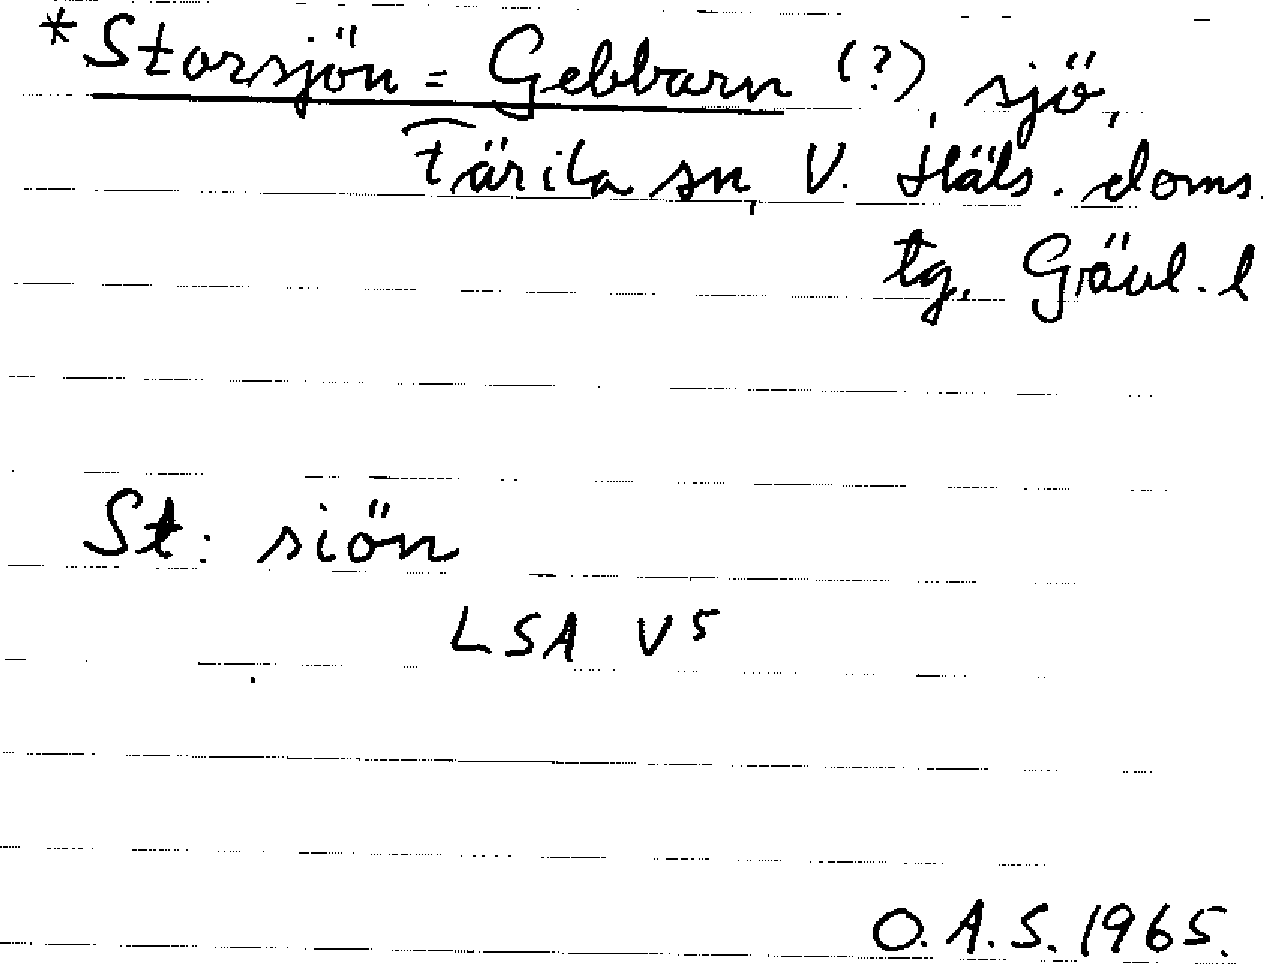 *Storsjön = Gebbarn (?), sjö,
Färila sn, V. Häls. doms.
tg. Gävl. l
St: siön
LSA V5
O.A.S. 1965.